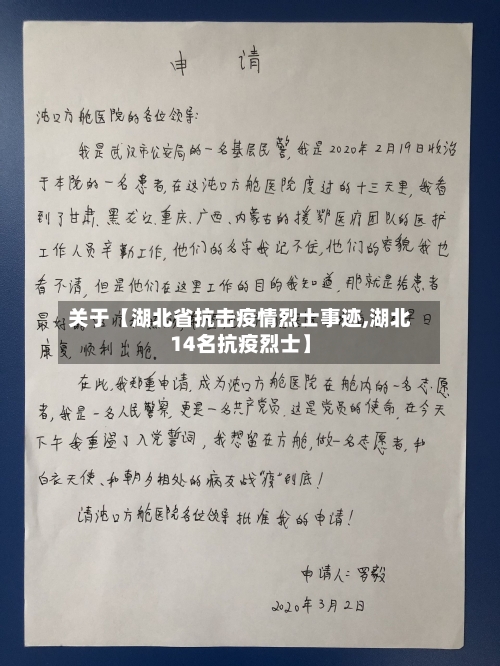 申 请
沌口方舱医院的各位领导:
我是武汉市公安局的一名基层民警,我是2020年2月19日收治
于本院的一名患者,在这沌口方舱医院度过的十三天里,我看
到了甘肃、黑龙江、重庆、广西、内蒙古的援鄂医疗团队的医护
工作人员辛勤工作,他们的名字我记不住,他们的容貌我也
看不清,但是他们在这里工作的目的我知道,那就是给患者
最好的
关于【湖北省抗击疫情烈士事迹,湖北
日
14名抗疫烈士】
康复,顺利出舱。
在此,我郑重申请,成为沌口方舱医院在舱内的一名志愿
者,我是一名人民警察,更是一名共产党员,这是党员的使命,在今天
下午我重温了入党誓词,我想留在方舱,做一名志愿者,和
白衣天使、和朝夕相处的病友战“疫”到底!
请沌口方舱医院各位领导批准我的申请!
申请人:罗毅
2020年3月2日